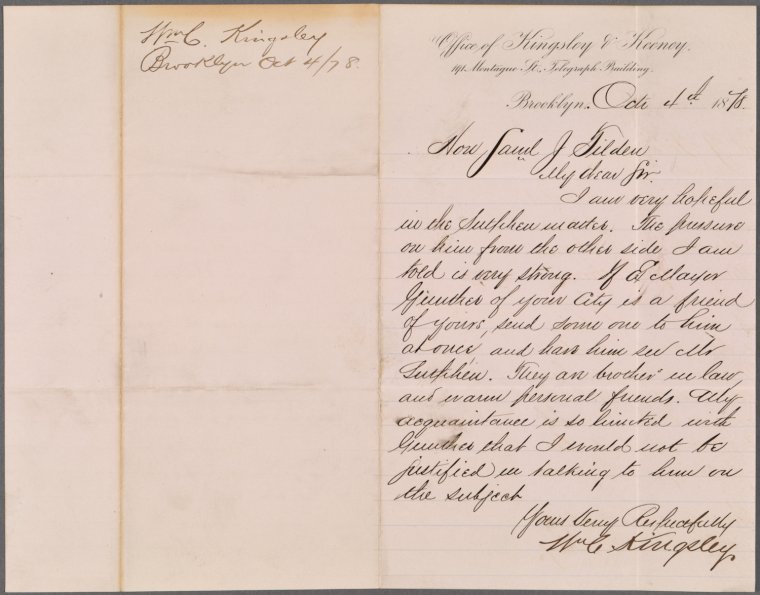 Wm C. Kingsley
Brooklyn Oct 4/78.
Office of Kingsley & Keeney.
191 Montague St., Telegraph Building.
Brooklyn, Oct 4th 1878.
Hon Saml J Tilden
My dear Sir.
I am very hopeful
in the Sutphen matter. The pressure
on him from the other side I am
told is very strong. If Ex Mayor
Gunther of your City is a friend
of yours, send some one to him
at once, and have him see Mr
Sutphen. They are brother in law
and warm personal friends. My
acquaintance is so limited with
Gunther that I would not be
justified in talking to him on
the subject
Yours Very Respectfully
Wm C Kingsley